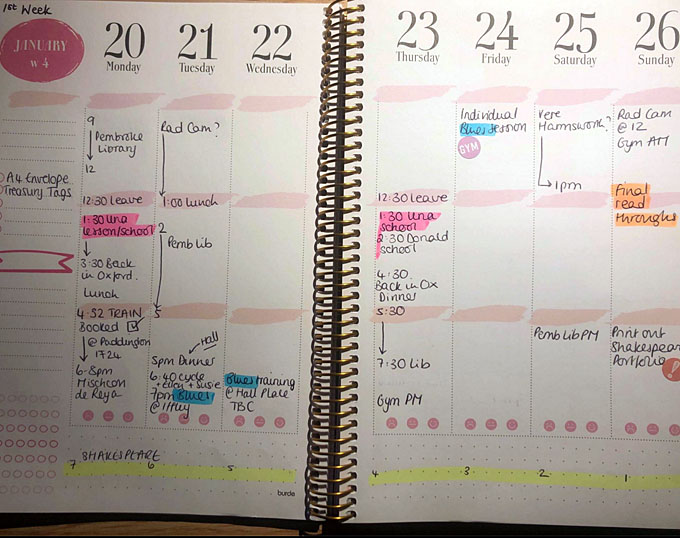 1st Week
JANUARY
W 4
20
Monday
21
Tuesday
22
Wednesday
23
Thursday
24
Friday
25
Saturday
26
Sunday
A4 Envelope
Treasury Tags
9
Pembroke
Library
12
12:30 leave
1:30 Una
lesson/school
3:30 Back
in Oxford.
Lunch
4:52 TRAIN
Booked
@ Paddington
1724
6-8pm
Mischcon
de Reya
Rad Cam?
1:00 lunch
2
Pemb Lib
5
Hall
5pm Dinner
6:40 cycle
+ Susie
7pm Blues
@ Iffley
Blues training
@ Hall Place
TBC
12:30 leave
1:30 Una
school
2:30 Donald
school
4:30
Back in Ox
Dinner
5:30
7:30 Lib
Gym PM
Individual
Blues Session
GYM
Vere
Harmsworth?
1pm
Pemb Lib PM
Rad Cam
@ 12
Gym AM
Final
read
throughs
Print out
Shakespear
Portfolio
SHAKESPEARE
7
6
5
4
3
2
1
burde